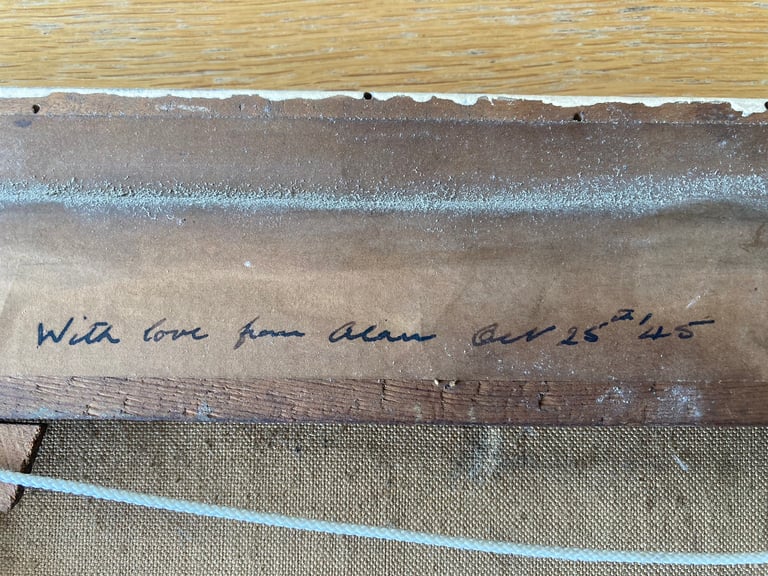 With love from Alan Oct 25th '45